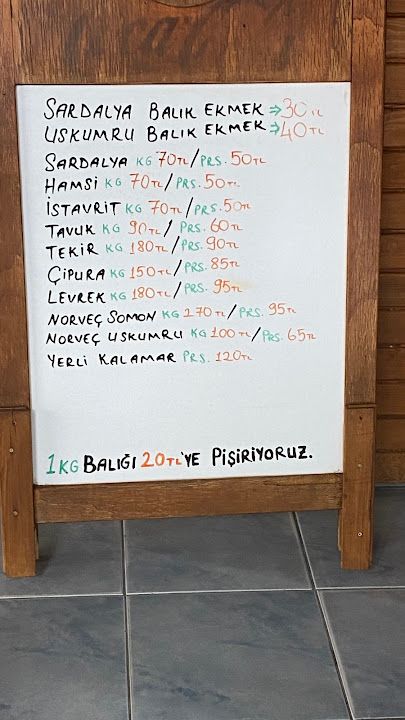 SARDALYA BALIK EKMEK ⇒ 30 TL
USKUMRU BALIK EKMEK ⇒ 40 TL
SARDALYA KG 70TL / PRS. 50TL
HAMSİ KG 70TL / PRS. 50TL
İSTAVRİT KG 70TL / PRS. 50TL
TAVUK KG 90TL / PRS. 60TL
TEKİR KG 180TL / PRS. 90TL
ÇİPURA KG 150TL / PRS. 85TL
LEVREK KG 180TL / PRS. 95TL
NORVEÇ SOMON KG 270TL / PRS. 95TL
NORVEÇ USKUMRU KG 100TL / PRS. 65TL
YERLİ KALAMAR PRS. 120TL
1KG BALIĞI 20TL'YE PİŞİRİYORUZ.